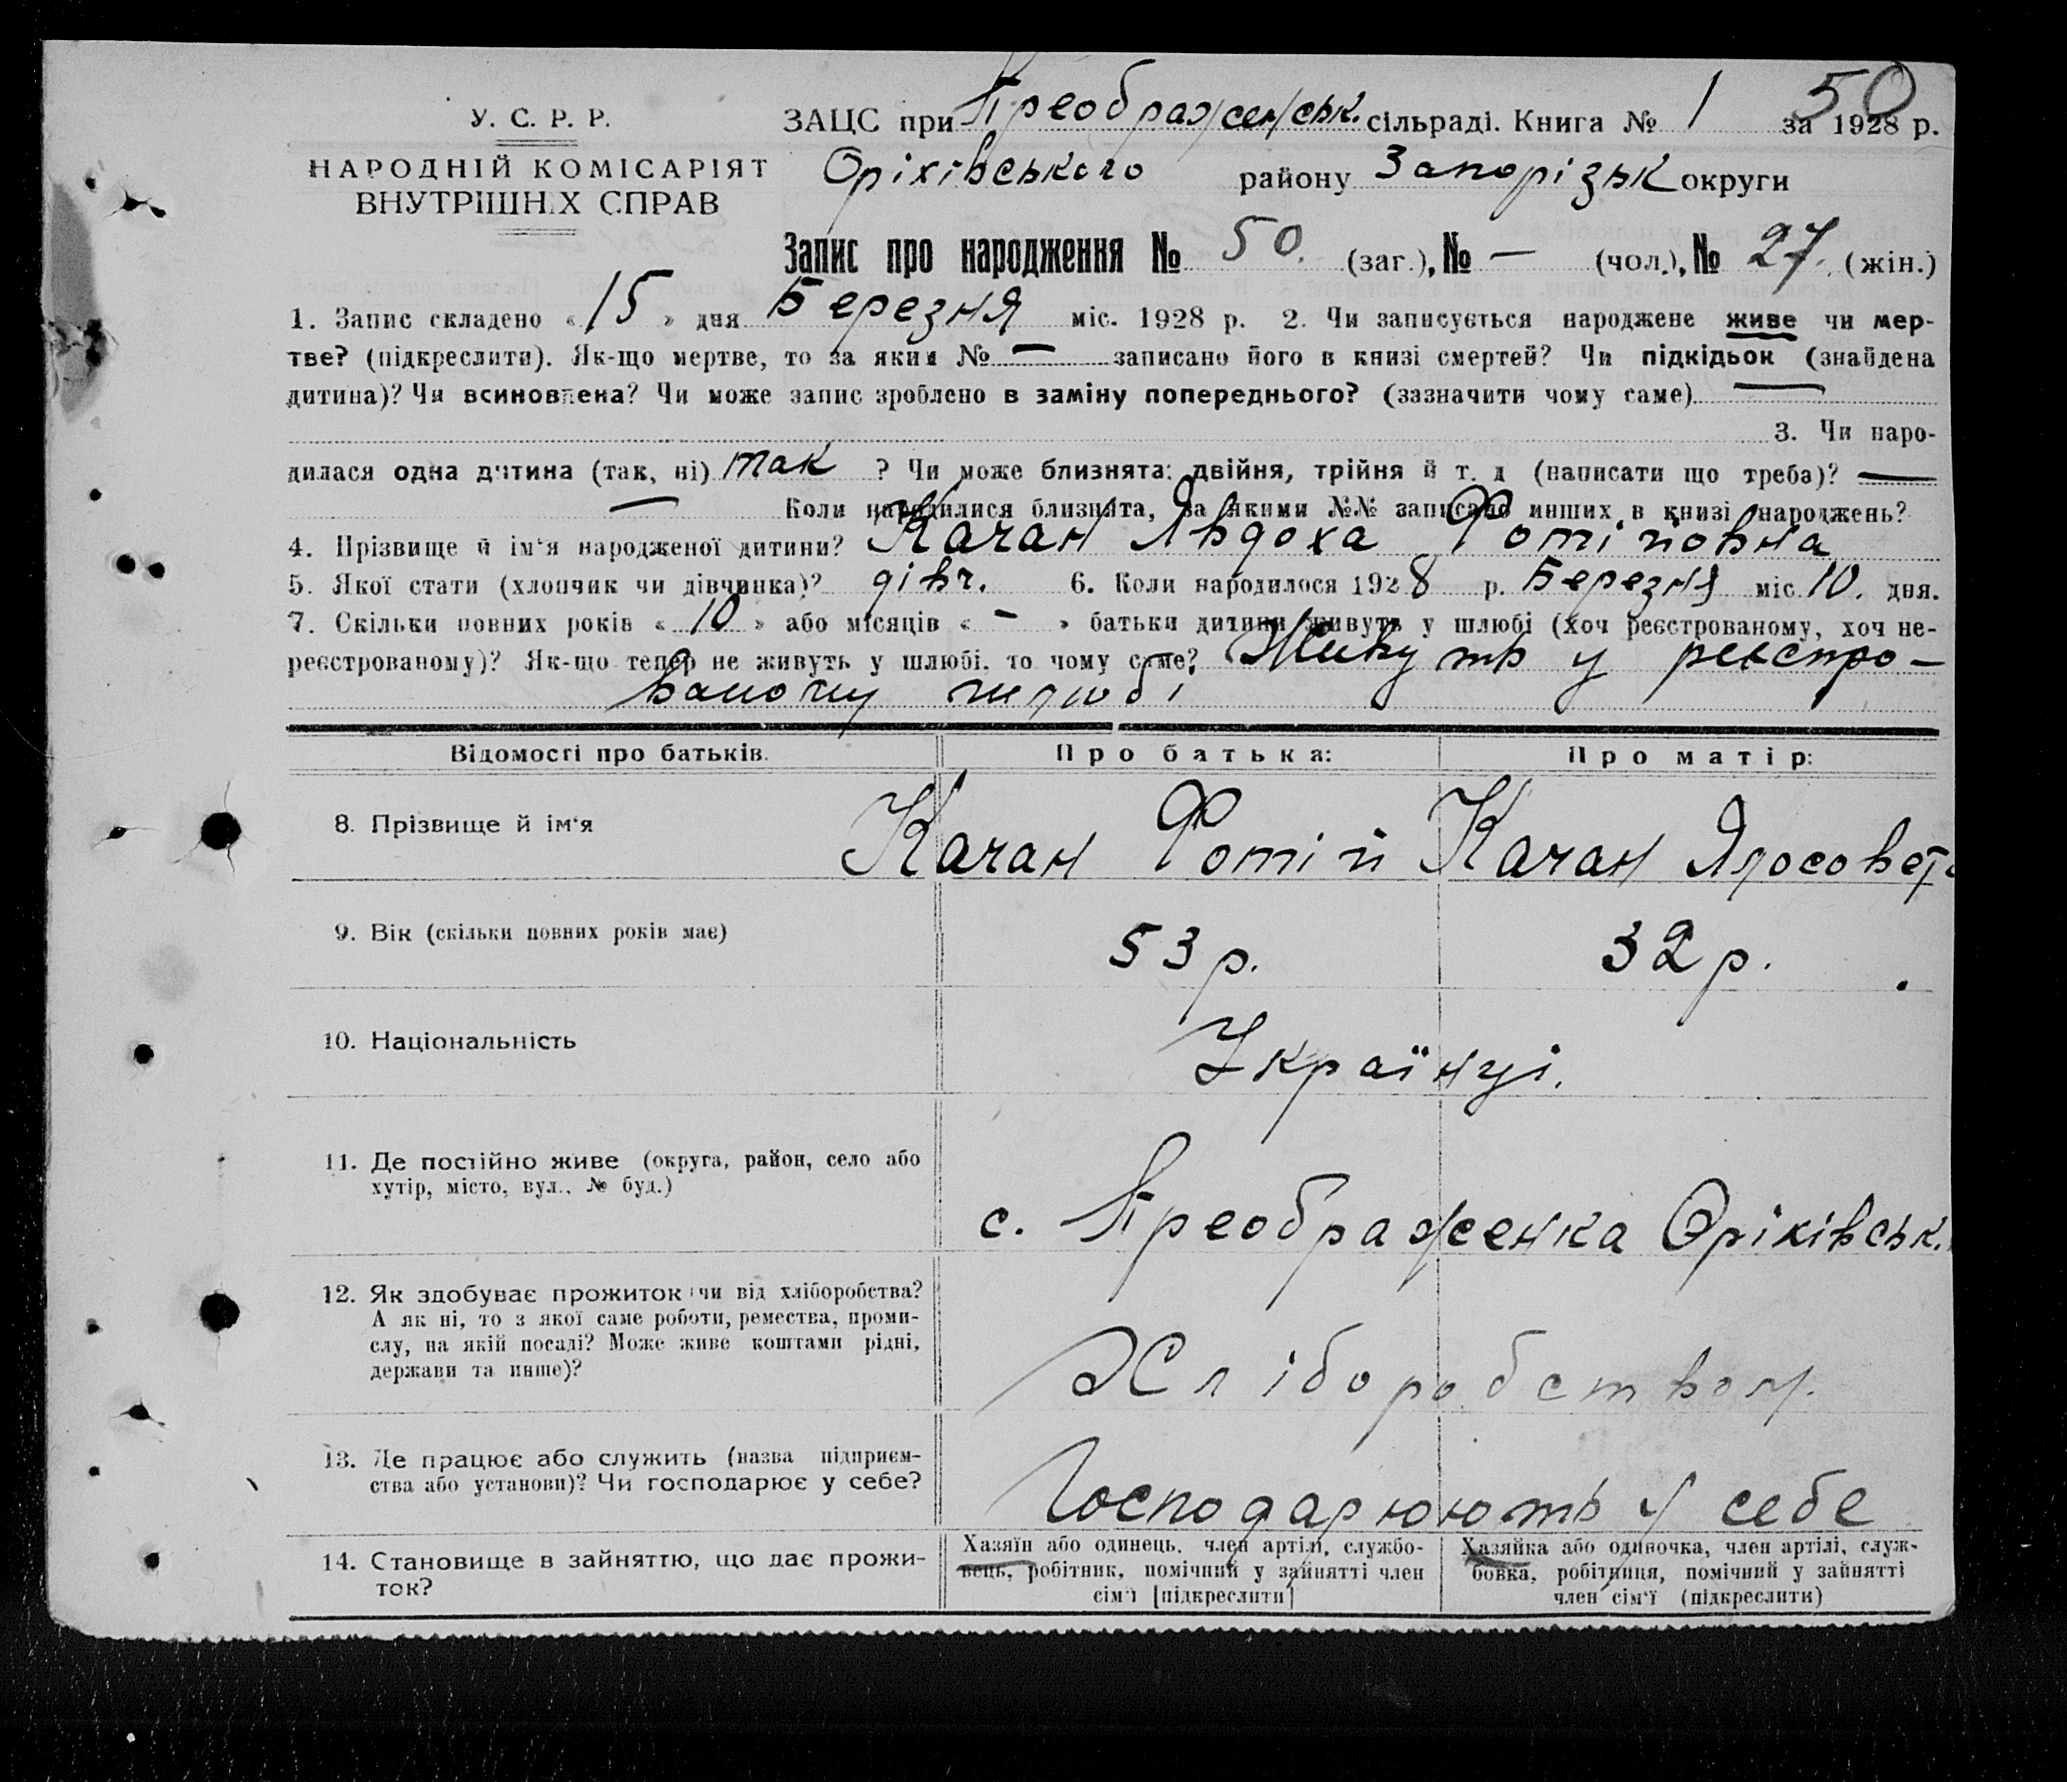 50
У. С. Р. Р.
НАРОДНІЙ КОМІСАРІЯТ
ВНУТРІШНІХ СПРАВ
ЗАЦС при Преображенськ. сільраді. Книга № 1 за 1928 р.
Оріхівського району Запорізьк округи
Запис про народження № 50. (заг.), № — (чол.), № 27. (жін.)
1. Запис складено «15» дня Березня міс. 1928 р. 2. Чи записується народжене живе чи мер-
тве? (підкреслити). Як-що мертве, то за яким № — записано його в книзі смертей? Чи підкідьок (знайдена
дитина)? Чи всиновлена? Чи може запис зроблено в заміну попереднього? (зазначити чому саме) —
3. Чи наро-
дилася одна дитина (так, ні) так ? Чи може близнята: двійня, трійня й т. д (написати що треба)? —
— Коли народилися близнята, за якими №№ записано инших в книзі народжень?
4. Прізвище й ім'я народженої дитини? Качан Явдоха Фотіїовна
5. Якої стати (хлопчик чи дівчинка)? дівч. 6. Коли народилося 1928 р. Березня міс. 10. дня.
7. Скільки повних років «10» або місяців «-» батьки дитини живуть у шлюбі (хоч реєстрованому, хоч не-
реєстрованому)? Як-що тепер не живуть у шлюбі. то чому саме? Живуть у реєстро-
ваному шлюбі
Відомості про батьків. Про батька: Про матір:
8. Прізвище й ім'я Качан Фотій Качан Ялосовета
9. Вік (скільки повних років має) 53 р. 32 р.
10. Національність Українці.
11. Де постійно живе (округа, район, село або
хутір, місто, вул., № буд.)
с. Преображенка Оріхівськ.
12. Як здобуває прожиток чи від хліборобства?
А як ні, то з якої саме роботи, ремества, проми-
слу, на якій посаді? Може живе коштами рідні,
держави та инше)?
Хліборобством.
13. Де працює або служить (назва підприєм-
ства або установи)? Чи господарює у себе?
Господарюють у себе
14. Становище в зайняттю, що дає прожи-
ток?
Хазяїн або одинець. член артілі, службо-
вець, робітник, помічний у зайнятті член
сім'ї [підкреслити]
Хазяйка або одиночка, член артілі, служ-
бовка, робітниця, помічний у зайнятті
член сім'ї (підкреслити)